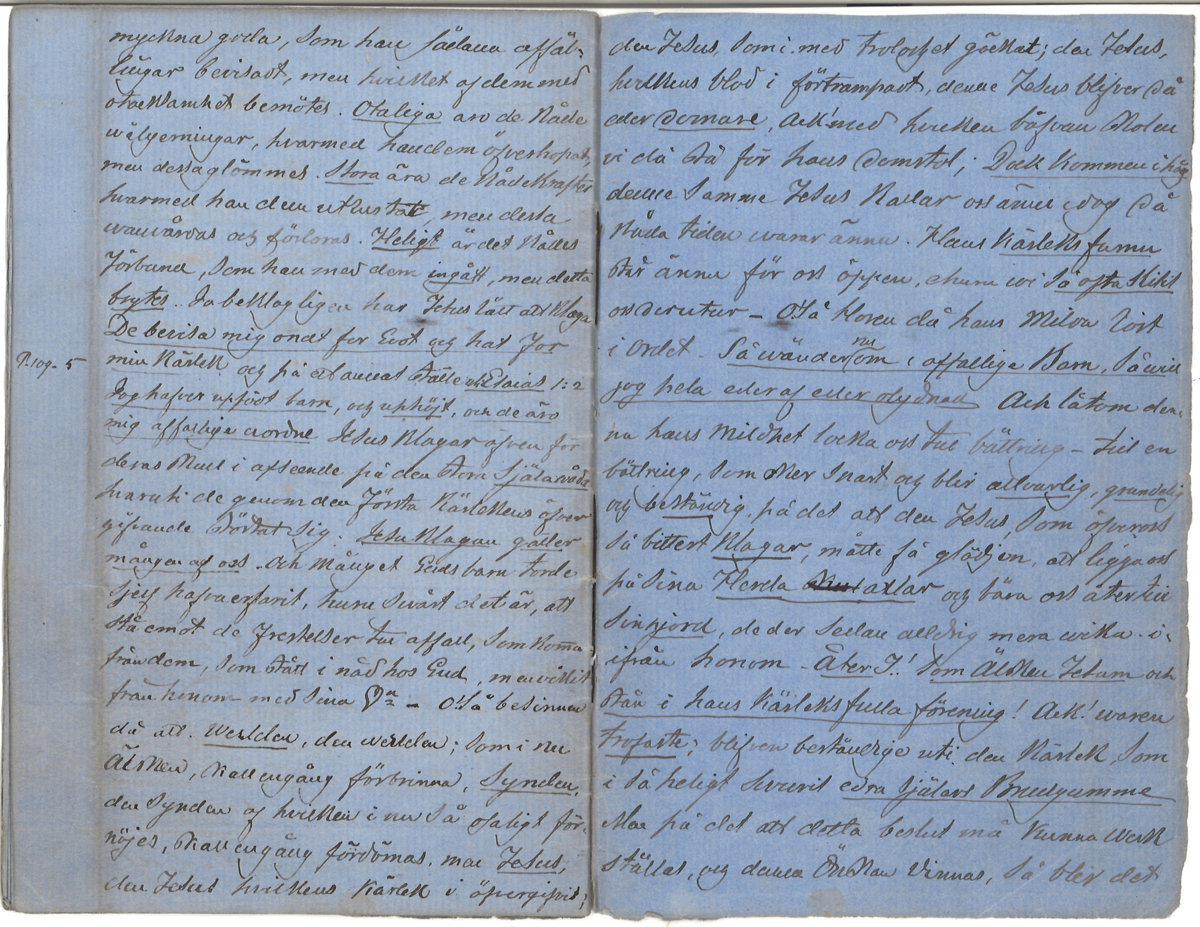 myckna goda, som han sådana affäl-
lingar bevisadt, men hvilket af dem med
otacksamhet bemötes. Otaliga äro de Nåde
wälgerningar, hvarmed han dem öfverhopat,
men dessa glömmes. Stora ära de Nådekrafter
hvarmed han dem utrustat, men dessa
wanvårdas och förloras. Heligt är det Nådes
Förbund, som han med dem ingått, men detta
brytes. Ja beklagligen har Jesus lätt att klaga
De bevisa mig ondt for Godt och hat for
P. 109 - 5
min Kärlek och på et annat Ställe Esaias 1:2
Jag hafver upfödt barn, och uphöjt, och de äro
mig affallige wordne Jesus klagar äfven för
deras skull i afseende på den stora Själavåda
hvaruti de genom den första Kärlekens öfver
gifvande störtat sig. Jesu klagan gäller
mången af oss. Och månget Guds barn torde
sjelf hafva erfarit, huru svårt det är, att
stå emot de frestelser till affall, som koma
från dem, som stått i nåd hos Gud, men vikit
från honom - med sina - O! Så besinnen
då att Werlden, den werlden; som i nu
Älsken, skall engång förbrinna, Synden,
den Synden af hvilken i nu så osaligt för-
nöjes, skall engång fördömas, men Jesus,
den Jesus hvilkens Kärlek i öfvergifvit;
den Jesus, som i med trolöshet gäckat; den Jesus,
hvilkens blod i förtrampadt, denne Jesus blifver då
eder domare, Ack! med hvilken bäfvan skolen
vi då stå för hans domstol; Dock kommen i håg
denne samme Jesus kallar oss ännu idag då
Nåda tiden warar ännu. Hans Kärleks famn
står ännu för oss öppen, ehuru wi så ofta slitit
oss derutur - O! Så hören då hans milda röst
i ordet. Så wänder nu om i affallige Barn, så will
jag hela eder af eder olydnad Ack låtom den-
na hans mildhet locka oss till bättring - till en
bättring, som sker snart och blir allvarlig, grundelig
och beständig, på det att den Jesus, som öfver oss
så bittert klagar, måtte få glädjen, att lägga oss
på sina Herda axlar och bära oss åter till
sin hjord, de der sedan alldrig mera wika i-
ifrån honom - Åter I! som Älsken Jesum och
stån i hans Kärleksfulla förening! Ack! waren
trofaste; blifven beständige uti den Kärlek, som
i så heligt svurit edra Själars Brudgumme
Men på det att detta beslut må kunna werk
ställas, och denna Önskan vinnas, så blir det